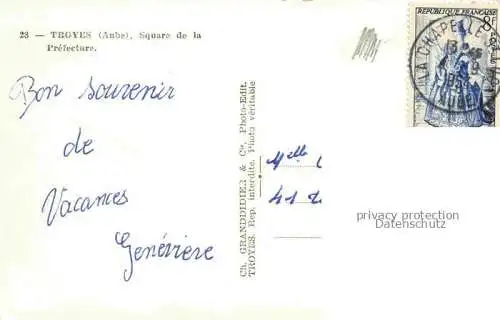 23 — TROYES (Aube), Square de la
Préfecture.
Bon souvenir
de
Vacances
Geneviève
Ch. GRANDDIDIER & Cie, Photo-Edit.
TROYES. Rep. interdite. Photo véritable
Melle
41
REPUBLIQUE FRANÇAISE
8F
LA CHAPELLE
AUBE
privacy protection
Datenschutz